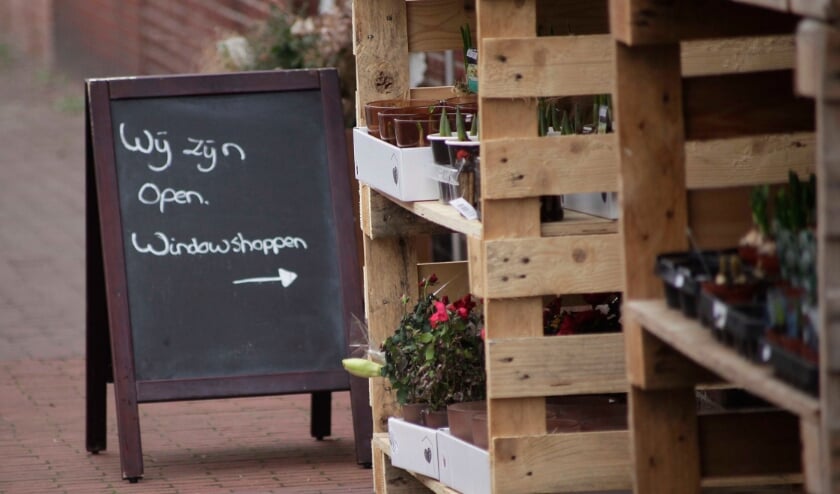 Wij zijn
Open.
Windowshoppen
→